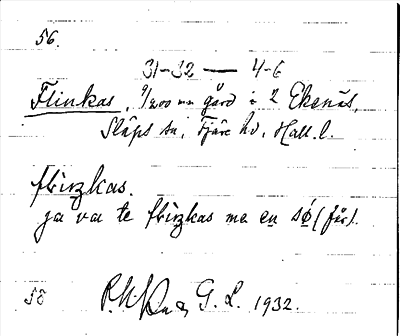 56.
31-32 — 4-6
Flinkas, 9/200 mn gård i 2 Ekenäs,
Släps sn, Fjäre hd, Hall. l.
flìŋkas.
ja va te flìŋkas me en sǿ (får).
58 G. L. 1932.